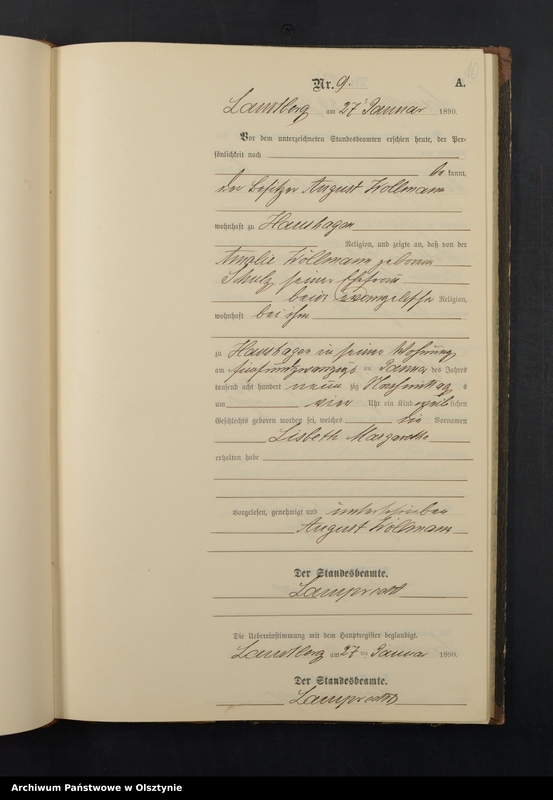 10
Nr. 9. A.
Landsberg am 27 Januar 1890.
Vor dem unterzeichneten Standesbeamten erschien heute, der Per-
sönlichkeit nach
be kannt,
der Besitzer August Wollmann
wohnhaft zu Hanshagen
Religion, und zeigte an, daß von der
Amalie Wollmann geborene
Schulz seiner Ehefrau
beide Evangelische Religion,
wohnhaft bei ihm
zu Hanshagen in seiner Wohnung
am fünfundzwanzigs ten Januar des Jahres
tausend acht hundert neun zig Nachmittag s
um vier Uhr ein Kind weib lichen
Geschlechts geboren worden sei, welches die Vornamen
Lisbeth Margarethe
erhalten habe
Vorgelesen, genehmigt und unterschrieben
August Wollmann
Der Standesbeamte.
Lamprecht
Die Uebereinstimmung mit dem Hauptregister beglaubigt.
Landsberg am 27 ten Januar 1890.
Der Standesbeamte.
Lamprecht
Archiwum Państwowe w Olsztynie